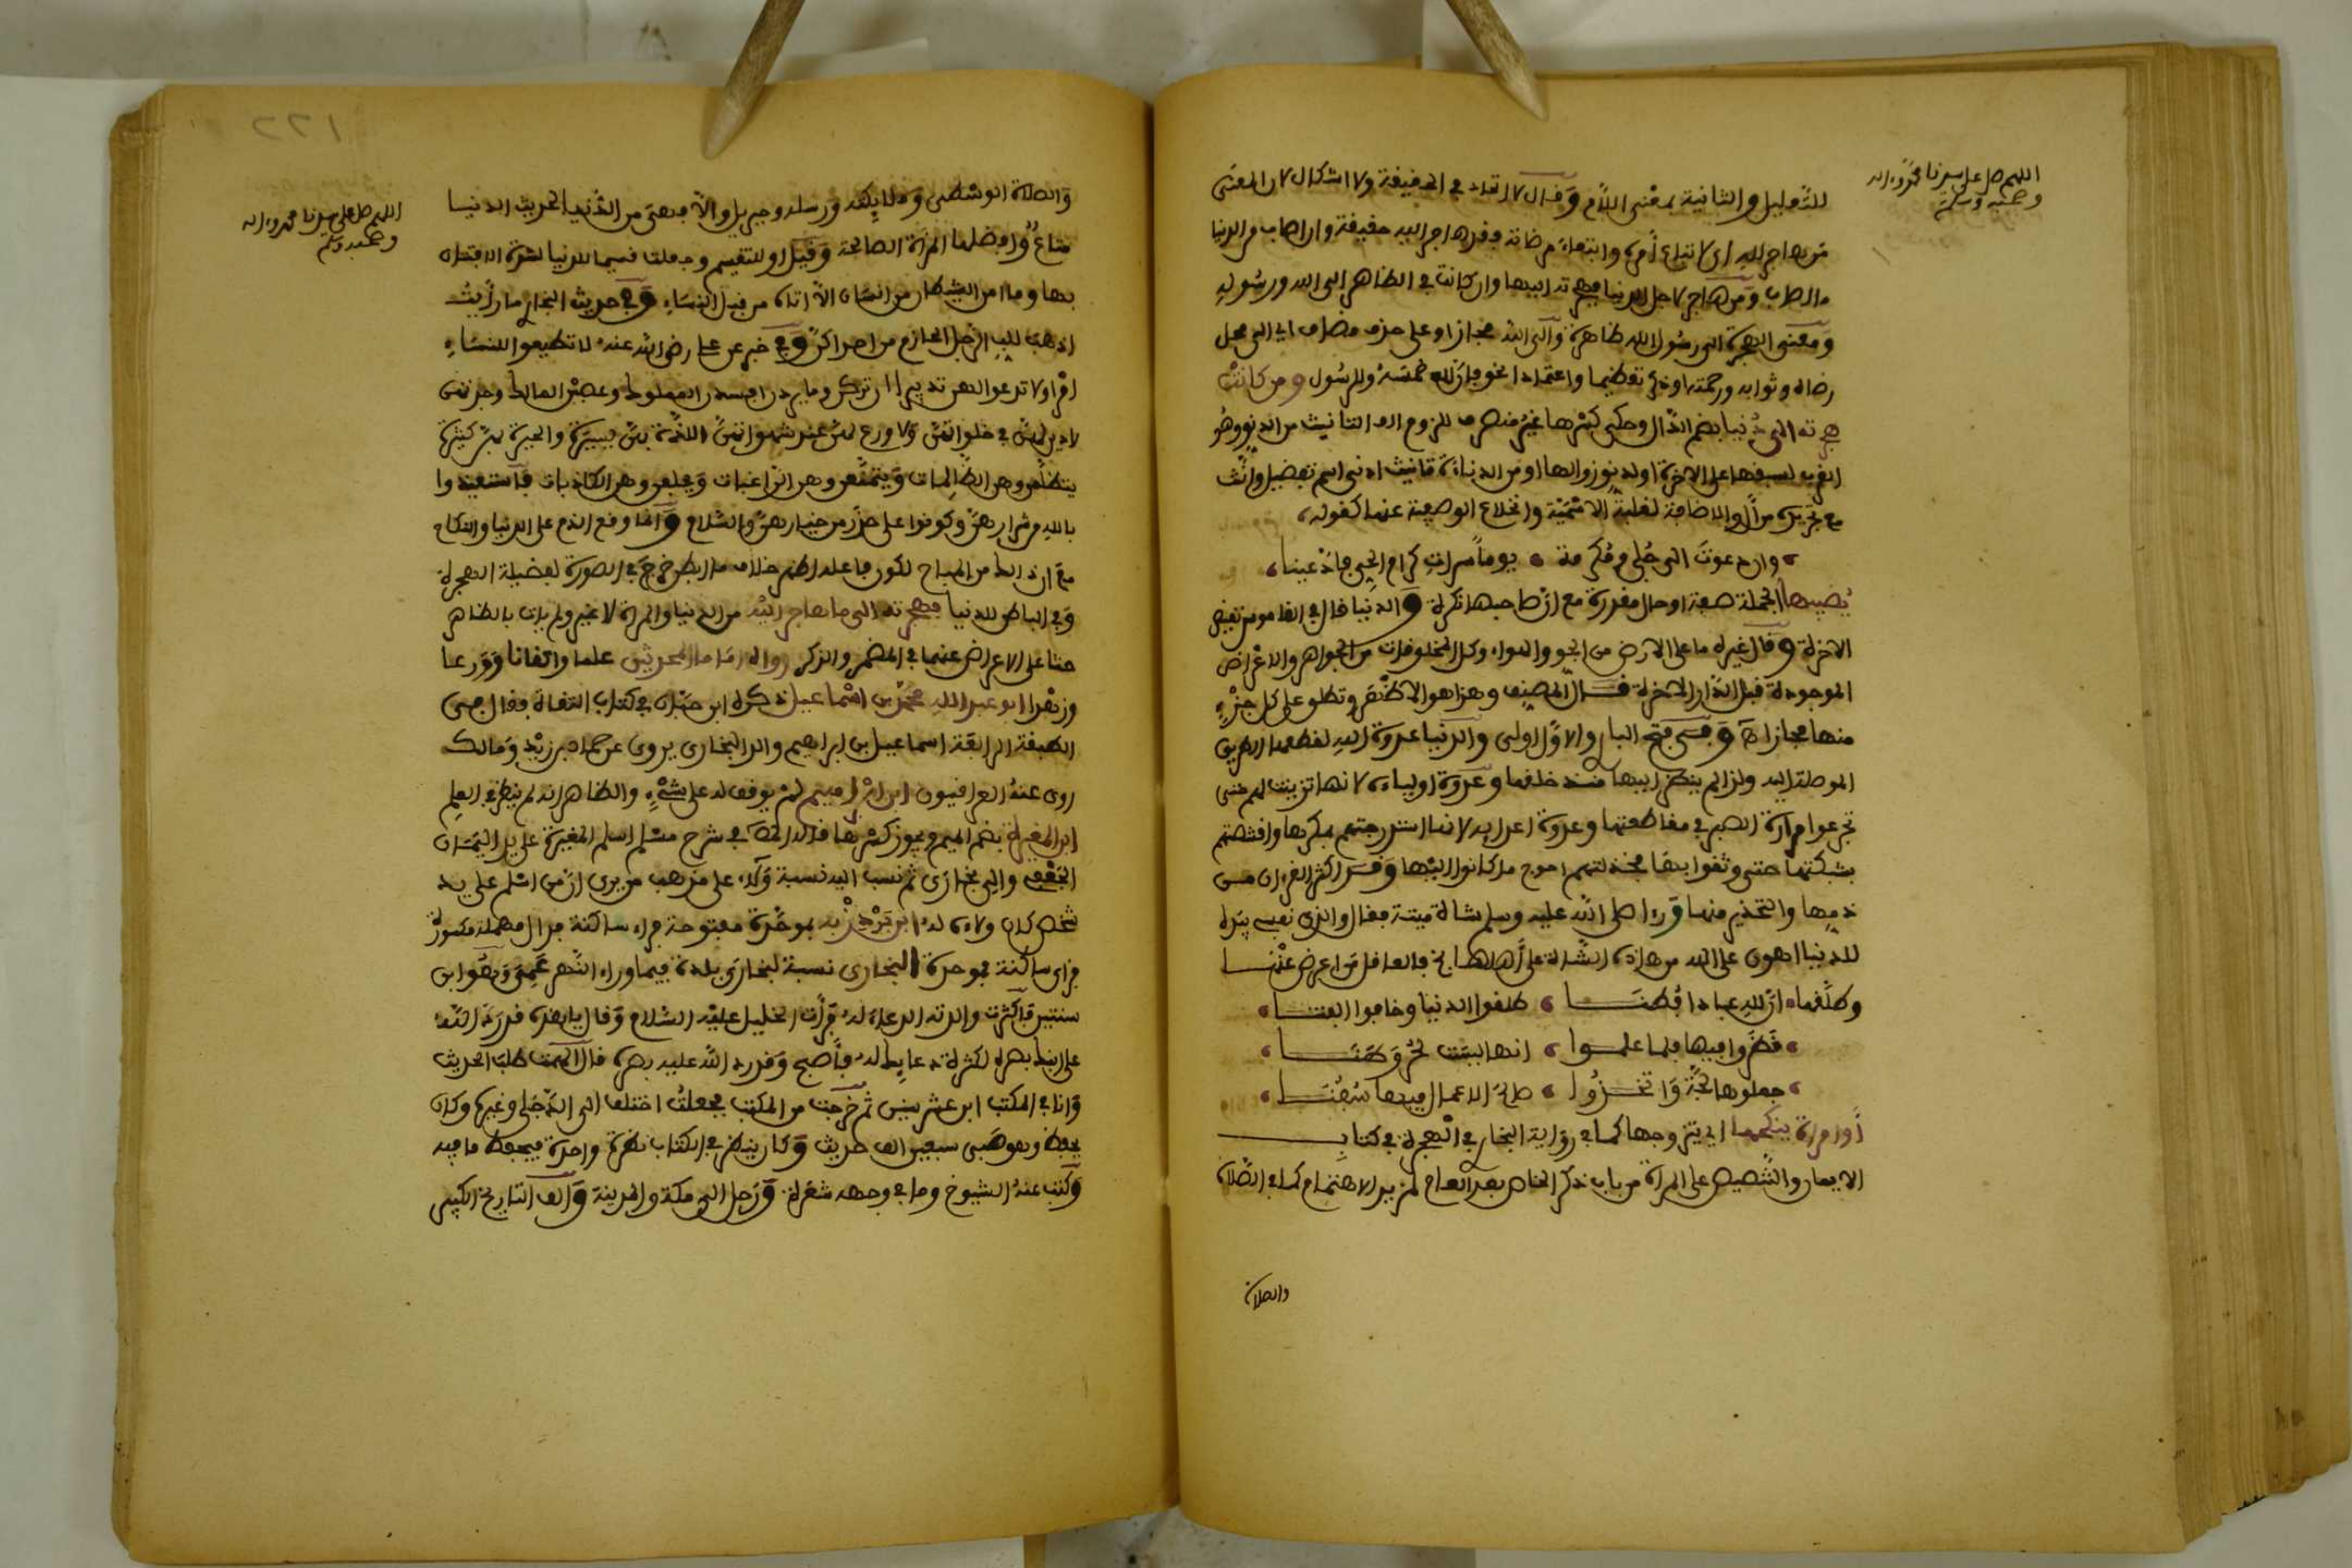 اللهم صل على سيدنا محمد وءاله
وصحبه وسلم
للتعليل والثانية بمعنى اللام وقال لا اتحاد في الحقيقة ولا اشكال لان المعنى
من هاجر لله اي لاتباع أمره وابتغاء مرضاته فقد هاجر اليه حقيقة وان اصاب من الدنيا
ما اصاب ومن هاجر لاجل الدنيا فهجرته اليها وان كانت في الظاهر الى الله ورسوله
ومعنى الهجرة الى رسول الله ظاهرة والى الله مجاز او على حذف مضاف اي الى محل
رضاه وثوابه ورحمته او ذكر تعظيما واعتمادا نحو فان لله خمسه وللرسول ومن كانت
هجرته الى دنيا بضم الدال وحكي كسرها غير منصرف للزوم الف التانيث من الدنو وهو
القرب لسبقها على الاخرة او لدنو زوالها او من الدناءة تانيث ادنى اسم تفضيل وانث
مع تجرده من أل والاضافة لغلبة الاسمية وانخلاع الوصفية عنها كقوله
وان دعوت الى جلى ومكرمة يوما سراة كرام الحي فادعينا
يصيبها الجملة صفة او حال مقدرة مع ان صاحبها نكرة والدنيا قال في القاموس نقيض
الاخرة وقال غيره ما على الارض من الجو والهواء وكل المخلوقات من الجواهر والاعراض
الموجودة قبل الدار الاخرة قال المصنف وهذا هو الاظهر وتطلق على كل جزء
منها مجازا وفي فتح الباري والاول اولى والدنيا عدوة لله لقطعها الطريق
الموصلة اليه ولذا لم ينظر اليها منذ خلقها وعدوة اوليائه لانها تزينت لهم حتى
تجرعوا مرارة الصبر في مقاطعتها وعدوة اعدائه لانها استدرجتهم بمكرها واقتنصتهم
بشبكتها حتى وثقوا بها فخذلتهم احوج ما كانوا اليها وقد اكثر القرءان من
ذمها والتحذير منها ورءا صلى الله عليه وسلم شاة ميتة فقال والذي نفسي بيده
للدنيا اهون على الله من هاذه الشاة على أهلها فالعاقل من اعرض عنها
وطلقها ان لله عبادا فطنا طلقوا الدنيا وخافوا الفتنا
نظروا فيها فلما علموا انها ليست لحي وطنا
جعلوها لجة واتخذوا صالح الاعمال فيها سفنا
أو امرأة ينكحها اي يتزوجها كما في رواية البخاري في الهجرة في كتاب
الايمان والتنصيص على المرأة من باب ذكر الخاص بعد العام لمزيد الاهتمام كما في الصلاة
والصلاة
١٢٢
اللهم صل على سيدنا محمد وءاله
وصحبه وسلم
والصلاة الوسطى وملائكته ورسله وجبريل والا فهي من الدنيا لحديث الدنيا
متاع وافضلها المرأة الصالحة وقيل او للتقسيم وجعلت قسيما للدنيا لشدة الافتتان
بها وما امن الشيطان من انسان الا اتاه من قبل النساء وفي حديث البخاري ما رأيت
اذهب للب الرجل الحازم من احداكن وفي خبر عن علي رضي الله عنه لا تطيعوا للنساء
امرا ولا تدعوا لهن تدبيرا ان تركن وما يردن افسدن المملوك وعصين المالك وجدتهن
لا دين لهن في خلواتهن ولا ورع لهن عند شهواتهن اللذة بهن يسيرة والحيرة بهن كثيرة
يتظلمن وهن الظالمات ويتمنعن وهن الراغبات ويحلفن وهن الكاذبات فاستعيذوا
بالله من شرارهن وكونوا على حذر من خيارهن والسلام وانما وقع الذم على الدنيا والنكاح
مع ان ذالك من المباح لكون فاعله اظهر خلاف ما ابطن خرج في الصورة لفضيلة الهجرة
وفي الباطن للدنيا فهجرته الى ما هاجر اليه من الدنيا والمرأة لا غير ولم يات بالظاهر
حثا على الاعراض عنهما في المضمر والذكر رواه اماما المحدثين علما واتقانا وورعا
وزهدا ابو عبد الله محمد بن اسماعيل ذكره ابن حبان في كتاب الثقات فقال في
الطبقة الرابعة اسماعيل بن ابراهيم والد البخاري يروي عن حماد بن زيد ومالك
روى عنه العراقيون ابن ابراهيم لم يوقف له على شيء والظاهر انه لم ينظر في العلم
ابن المغيرة بضم الميم ويجوز كسرها قاله في شرح مسلم اسلم المغيرة على يد اليمان
الجعفي والي بخارى ثم نسب اليه نسبة ولاء على مذهب من يرى ان من اسلم على يد
شخص كان ولاءه له ابن بردزبه بموحدة مفتوحة فراء ساكنة فدال مهملة مكسورة
فزاي ساكنة فموحدة البخاري نسبة لبخارى بلدة فيما وراء النهر عمي وهو ابن
سنتين فاكثرت والدته الدعاء له فرأت الخليل عليه السلام وقال يا هذه قد رد الله
على ابنك بصره لكثرة دعائك له فأصبح وقد رد الله عليه بصره قال الهمت طلب الحديث
وانا في المكتب ابن عشر سنين ثم خرجت من المكتب فجعلت اختلف الى الداخلي وغيره وكان
يحفظ وهو صبي سبعين الف حديث وكان ينظر في الكتاب نظرة واحدة فيحفظ ما فيه
وكتب عنه الشيوخ وما في وجهه شعرة ورحل الى مكة والمدينة وألف التاريخ الكبير